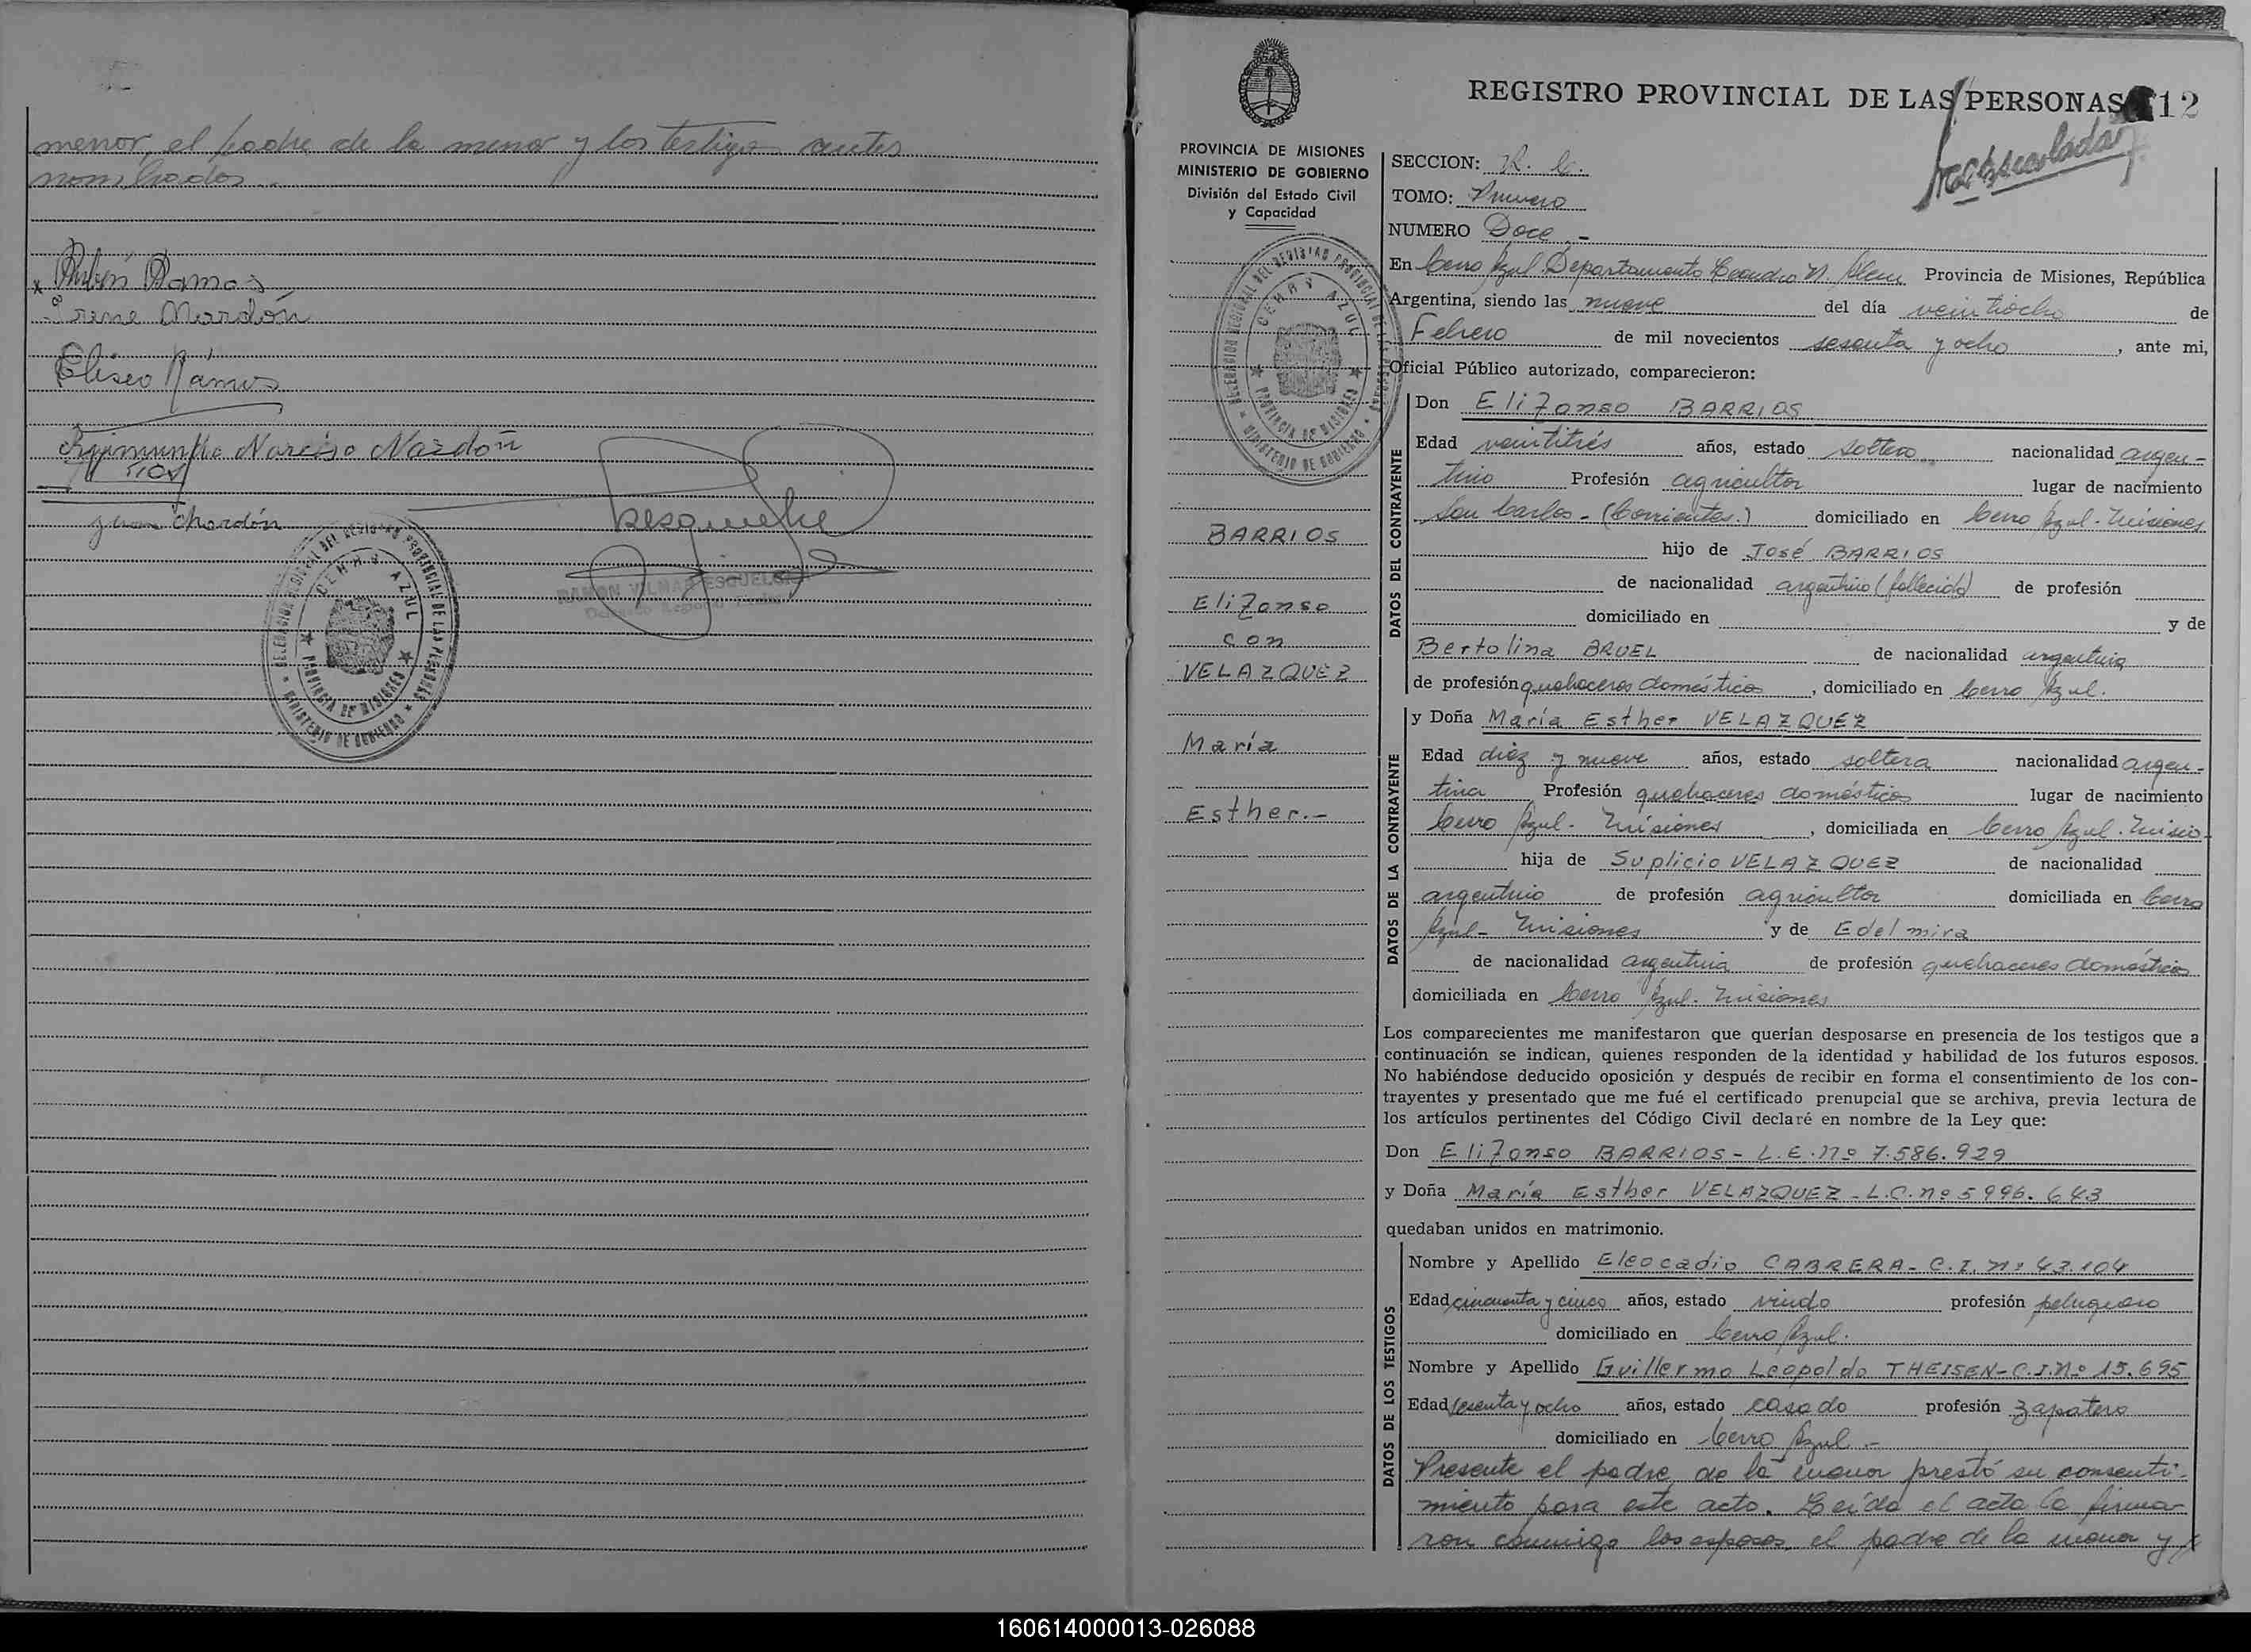 menor, el padre de la menor y los testigos antes
nombrados.-
Rubén Ramos
Irene Mardón
Eliseo Ramos
Raimundo Narciso Mardón
Juan Chardón
DELEGACION REGIONAL DEL REGISTRO PROVINCIAL DE LAS PERSONAS
CERRO AZUL
PROVINCIA DE MISIONES
MINISTERIO DE GOBIERNO
RAMON VILMAR ESQUELCHE
REGISTRO PROVINCIAL DE LAS PERSONAS
12
PROVINCIA DE MISIONES
MINISTERIO DE GOBIERNO
División del Estado Civil
y Capacidad
DELEGACION REGIONAL DEL REGISTRO PROVINCIAL DE LAS PERSONAS
CERRO AZUL
PROVINCIA DE MISIONES
MINISTERIO DE GOBIERNO
BARRIOS
Elifonso
con
VELAZQUEZ
María
Esther.-
SECCION: R. C.
TOMO: Primero
NUMERO Doce.-
En Cerro Azul Departamento Leandro N. Alem Provincia de Misiones, República
Argentina, siendo las nueve del día veintiocho de
Febrero de mil novecientos sesenta y ocho, ante mi,
Oficial Público autorizado, comparecieron:
DATOS DEL CONTRAYENTE
Don Elifonso BARRIOS
Edad veintitrés años, estado soltero nacionalidad argen-
tino Profesión agricultor lugar de nacimiento
San Carlos - (Corrientes.) domiciliado en Cerro Azul - Misiones
hijo de José BARRIOS
de nacionalidad argentino (fallecido) de profesión
domiciliado en y de
Bertolina BRUEL de nacionalidad argentina
de profesión quehaceres domésticos, domiciliado en Cerro Azul.
DATOS DE LA CONTRAYENTE
y Doña María Esther VELAZQUEZ
Edad diez y nueve años, estado soltera nacionalidad argen-
tina Profesión quehaceres domésticos lugar de nacimiento
Cerro Azul - Misiones, domiciliada en Cerro Azul. Misio-
hija de Suplicio VELAZQUEZ de nacionalidad
argentino de profesión agricultor domiciliada en Cerro
Azul - Misiones y de Edelmira
de nacionalidad argentina de profesión quehaceres domésticos
domiciliada en Cerro Azul. Misiones
Los comparecientes me manifestaron que querían desposarse en presencia de los testigos que a
continuación se indican, quienes responden de la identidad y habilidad de los futuros esposos.
No habiéndose deducido oposición y después de recibir en forma el consentimiento de los con-
trayentes y presentado que me fué el certificado prenupcial que se archiva, previa lectura de
los artículos pertinentes del Código Civil declaré en nombre de la Ley que:
Don Elifonso BARRIOS - L.E.nº 7.586.929
y Doña María Esther VELAZQUEZ - L.C.nº 5996.643
quedaban unidos en matrimonio.
DATOS DE LOS TESTIGOS
Nombre y Apellido Eleocadio CABRERA - C.I.nº 43.104
Edad cincuenta y cinco años, estado viudo profesión peluquero
domiciliado en Cerro Azul.
Nombre y Apellido Guillermo Leopoldo THEISEN - C.I.Nº 15.695
Edad sesenta y ocho años, estado casado profesión zapatero
domiciliado en Cerro Azul.-
Presente el padre de la menor prestó su consenti-
miento para este acto. Leída el acta la firma-
ron conmigo los esposos, el padre de la menor y
160614000013-026088